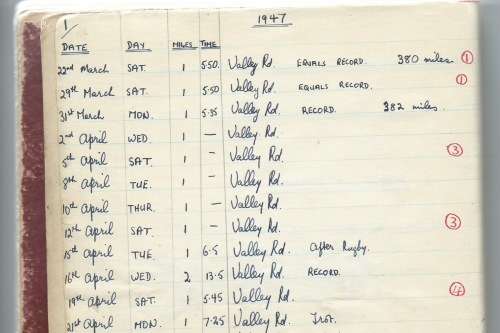 1 1947
DATE DAY MILES TIME
22nd March SAT. 1 5.50. Valley Rd. EQUALS RECORD. 380 miles. 1
29th March SAT. 1 5.50 Valley Rd. EQUALS RECORD. 1
31st March MON. 1 5.35 Valley Rd. RECORD. 382 miles.
2nd April WED. 1 — Valley Rd.
5th April SAT. 1 — Valley Rd. 3
8th April TUE. 1 — Valley Rd.
10th April THUR. 1 — Valley Rd.
12th April SAT. 1 — Valley Rd. 3
15th April TUE. 1 6.5 Valley Rd. After Rugby.
16th April WED. 2 13.5 Valley Rd. RECORD.
19th April SAT. 1 5.45 Valley Rd. 4
21st April MON. 1 7.25 Valley Rd. Trot.